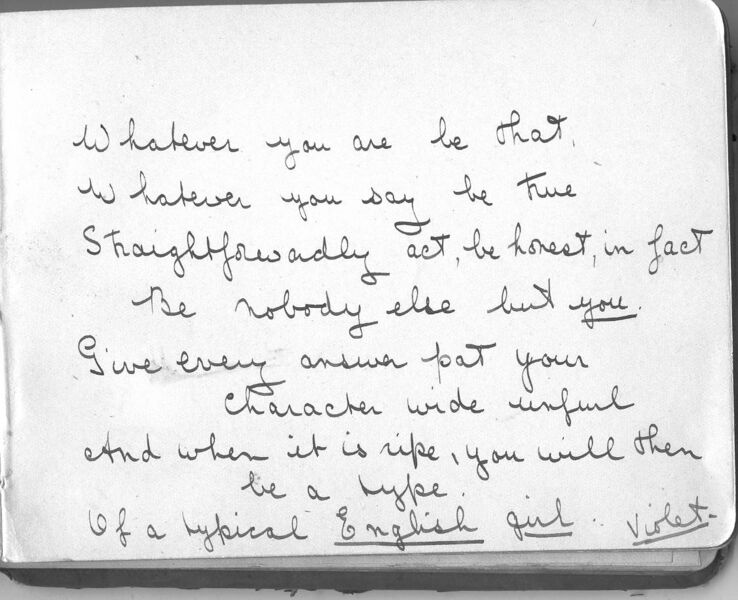 Whatever you are be that.
Whatever you say be true
Straightforwadly act, be honest, in fact
Be nobody else but you.
Give every answer pat your
character wide unfurl
And when it is ripe, you will then
be a type.
Of a typical English girl.
Violet-